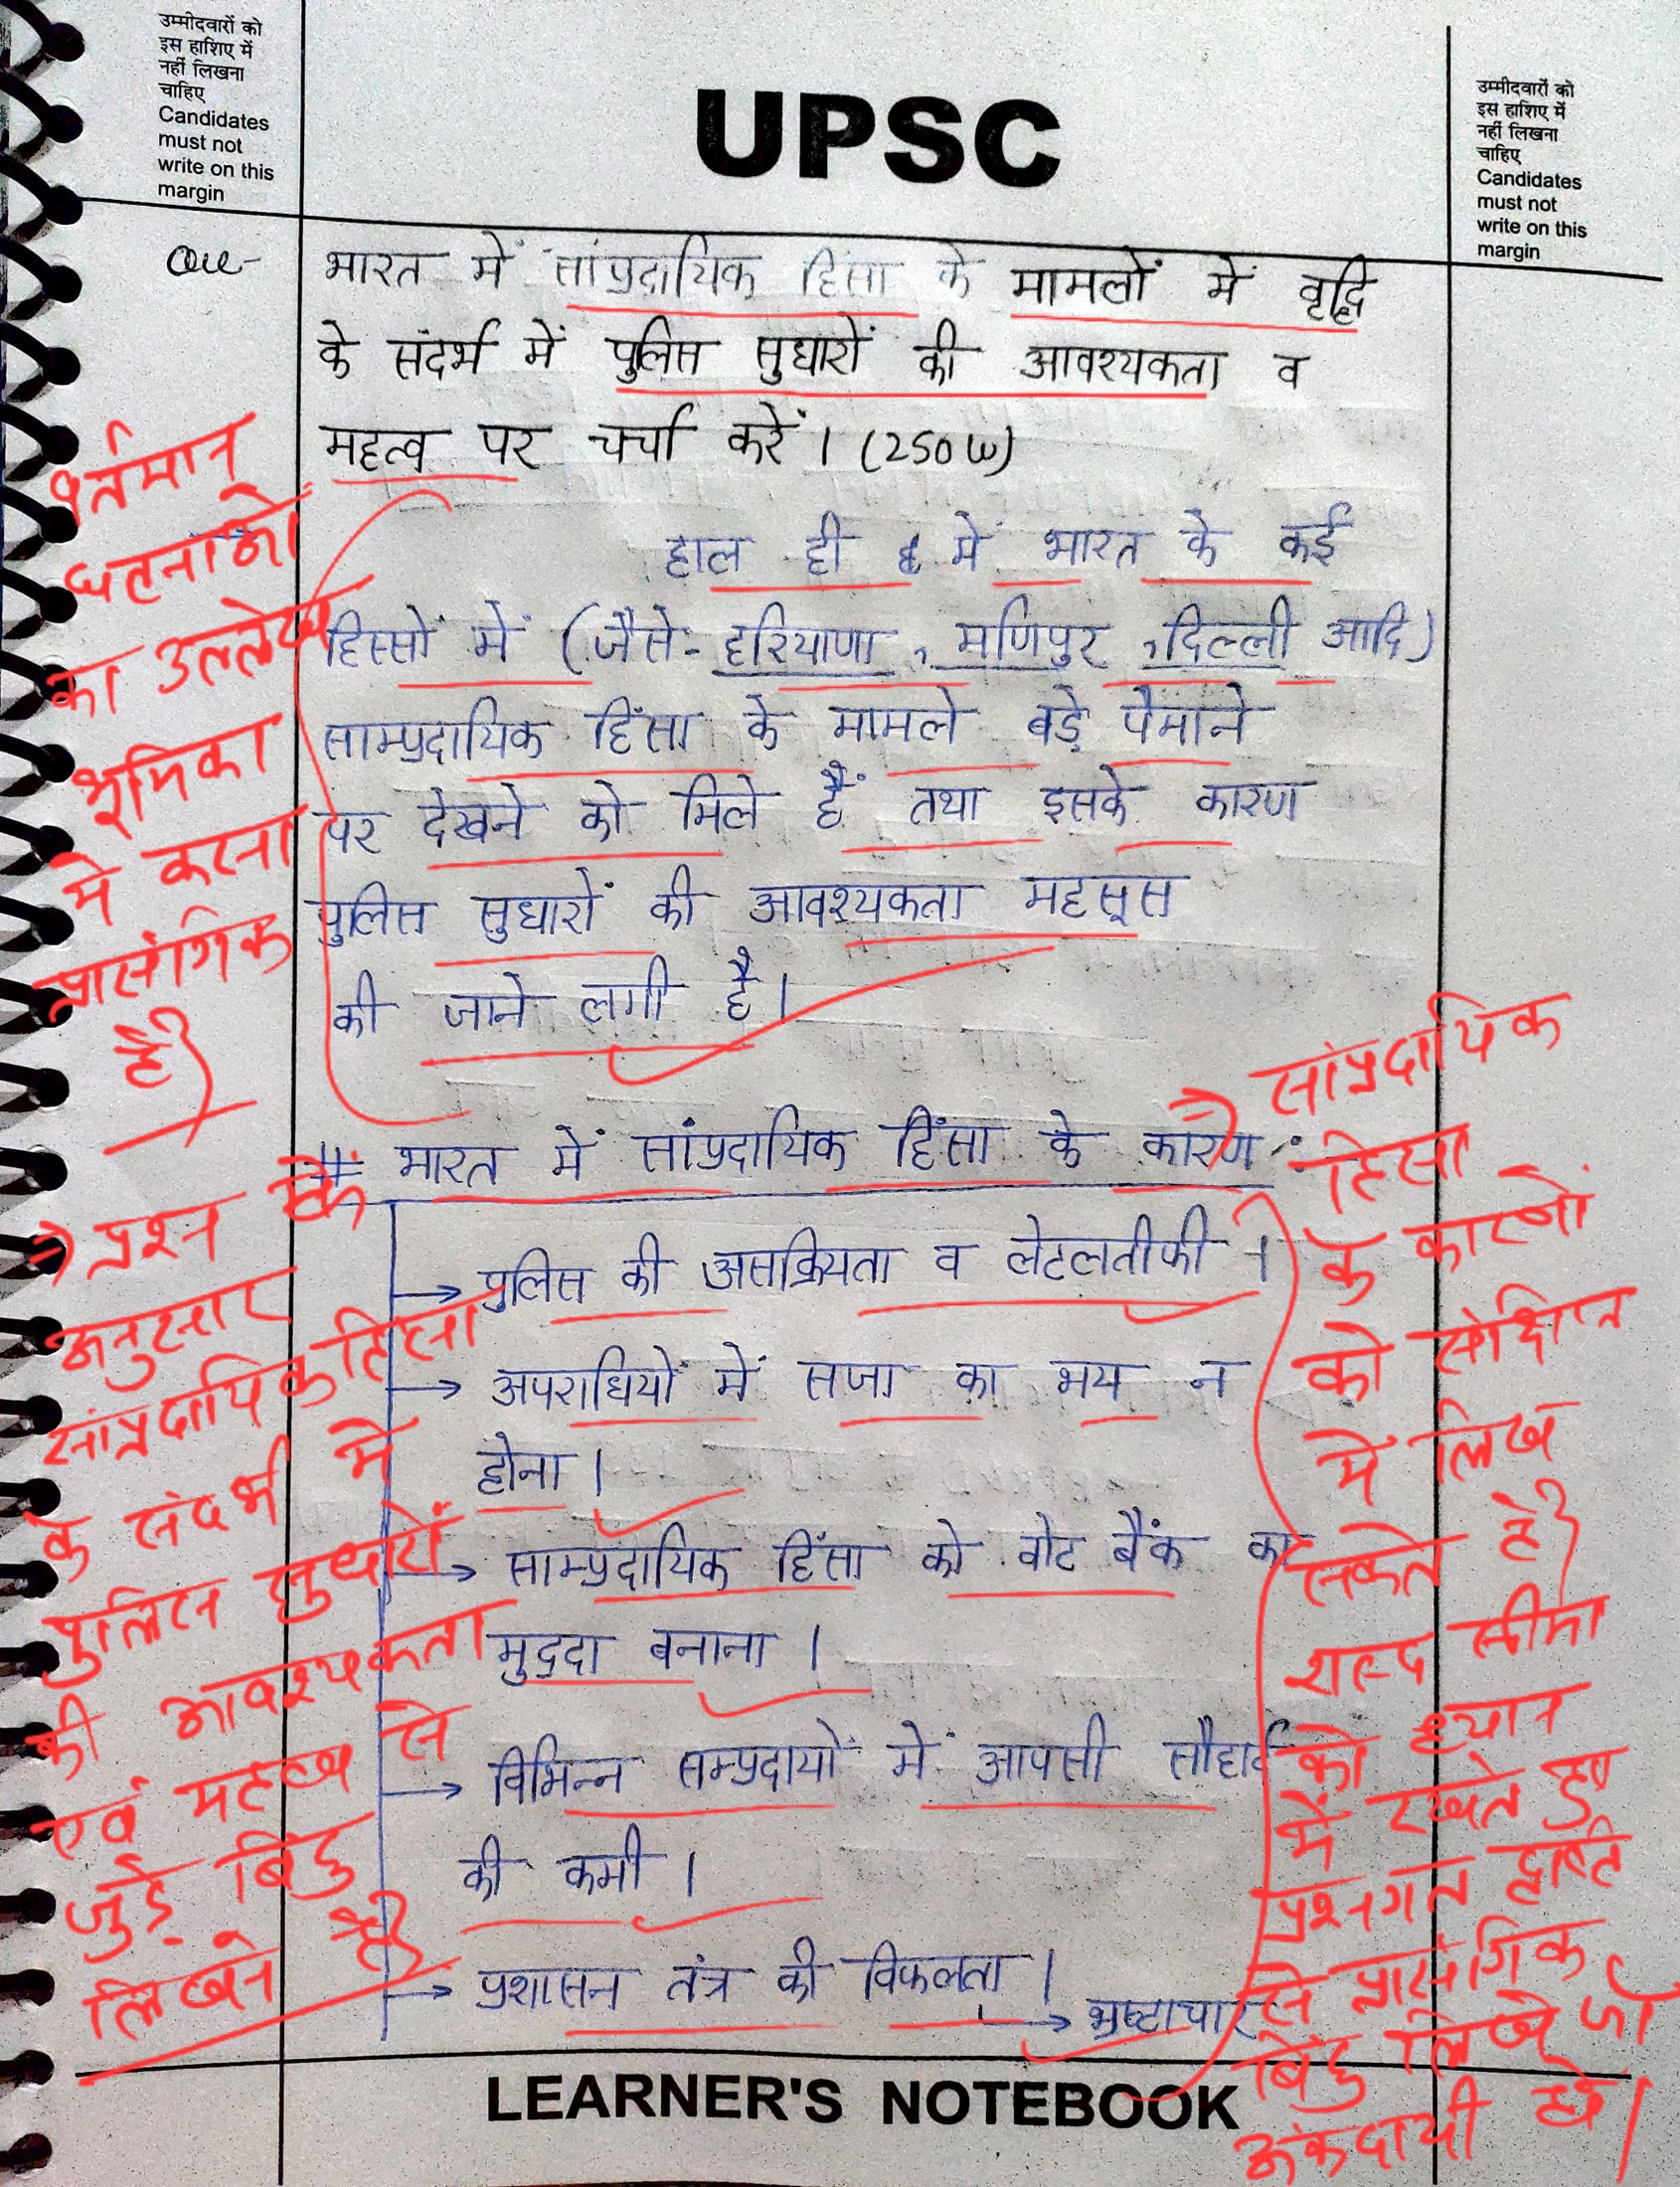 उम्मीदवारों को
इस हाशिए में
नहीं लिखना
चाहिए
Candidates
must not
write on this
margin
UPSC
उम्मीदवारों को
इस हाशिए में
नहीं लिखना
चाहिए
Candidates
must not
write on this
margin
Que-
भारत में सांप्रदायिक हिंसा के मामलों में वृद्धि
के संदर्भ में पुलिस सुधारों की आवश्यकता व
महत्व पर चर्चा करें। (250 W)
हाल ही में भारत के कई
हिस्सों में (जैसे- हरियाणा, मणिपुर, दिल्ली आदि)
साम्प्रदायिक हिंसा के मामले बड़े पैमाने
पर देखने को मिले हैं तथा इसके कारण
पुलिस सुधारों की आवश्यकता महसूस
की जाने लगी है।
वर्तमान
घटनाओं
का उल्लेख
भूमिका
में करना
प्रासंगिक
है।
# भारत में सांप्रदायिक हिंसा के कारण :
→ पुलिस की असक्रियता व लेटलतीफी।
→ अपराधियों में सजा का भय न
होना।
→ साम्प्रदायिक हिंसा को वोट बैंक का
मुद्दा बनाना।
→ विभिन्न सम्प्रदायों में आपसी सौहार्द
की कमी।
→ प्रशासन तंत्र की विफलता।
→ भ्रष्टाचार
⇒ प्रश्न के
अनुसार
सांप्रदायिक हिंसा
के संदर्भ में
पुलिस सुधारों
की आवश्यकता
एवं महत्व से
जुड़े बिंदु
लिखने है।
⇒ सांप्रदायिक
हिंसा
के कारणों
को संक्षिप्त
में लिख
सकते है।
शब्द सीमा
को ध्यान
में रखते हुए
प्रश्नगत दृष्टि
से प्रासंगिक
बिंदु लिखे जो
अंकदायी हो।
LEARNER'S NOTEBOOK